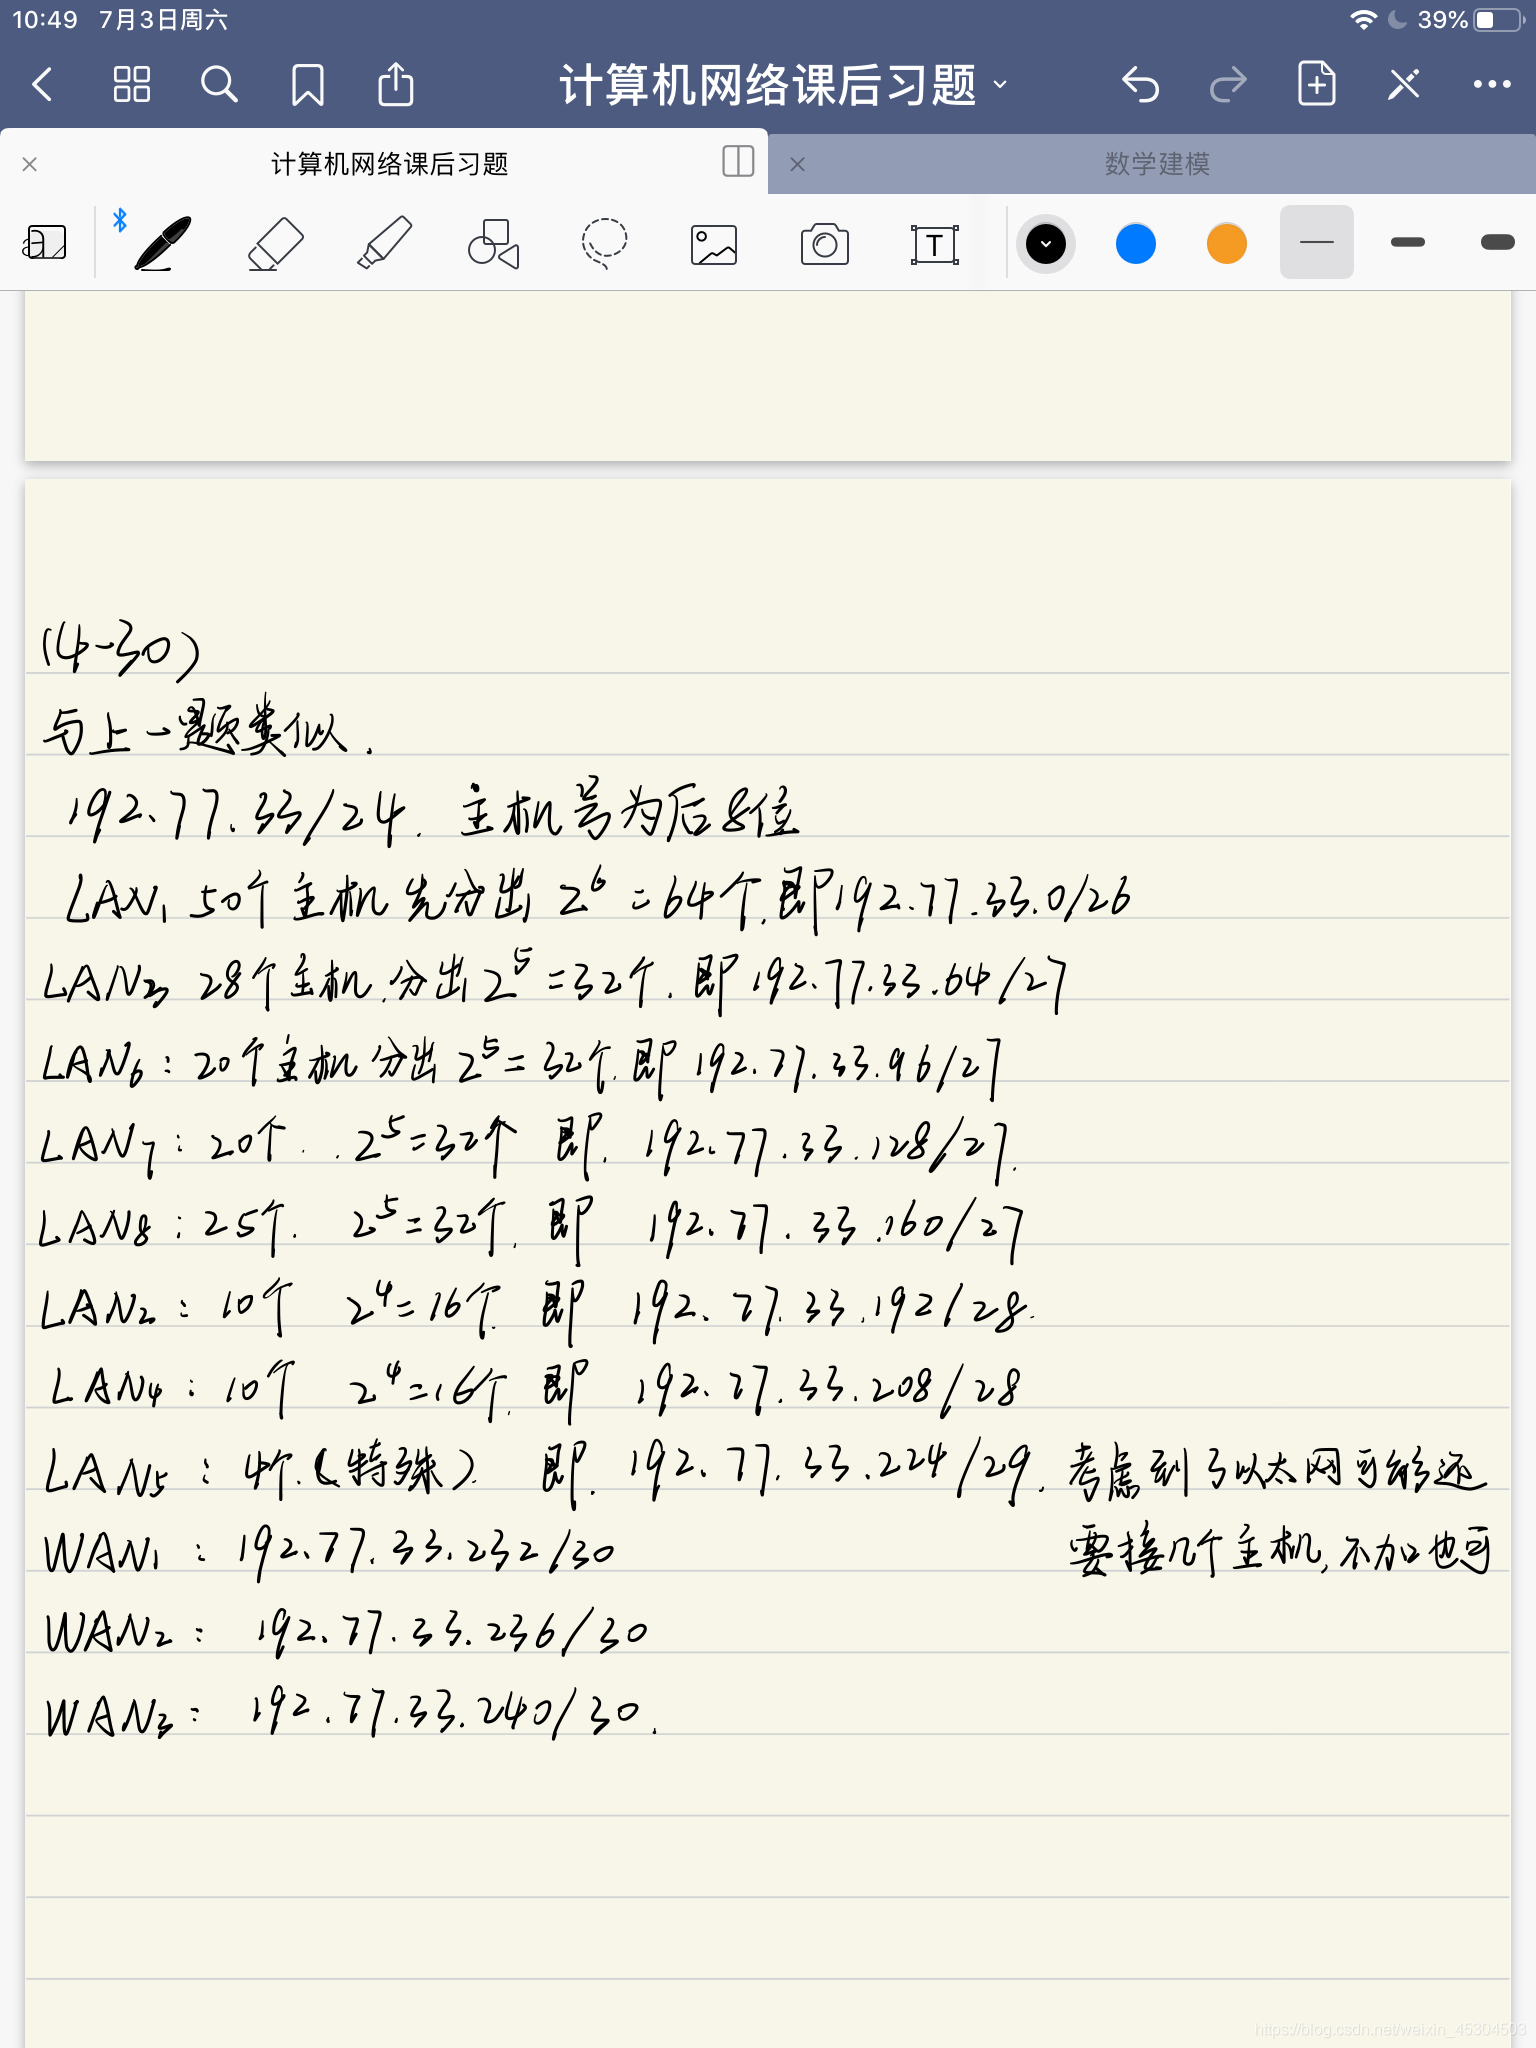 10:49 7月3日周六 39%
计算机网络课后习题
计算机网络课后习题 数学建模
(4-30)
与上一题类似.
192.77.33/24. 主机号为后8位
LAN1 50个主机先分出 2^6 = 64个.即192.77.33.0/26
LAN3 28个主机.分出2^5=32个.即192.77.33.64/27
LAN6:20个主机分出 2^5=32个.即 192.77.33.96/27
LAN7:20个..2^5=32个 即.192.77.33.128/27.
LAN8:25个. 2^5=32个.即 192.77.33.160/27
LAN2:10个 2^4=16个.即 192.77.33.192/28.
LAN4:10个 2^4=16个.即 192.77.33.208/28
LAN5:4个.(特殊).即.192.77.33.224/29.考虑到了以太网可能还
要接几个主机,不加也可
WAN1:192.77.33.232/30
WAN2:192.77.33.236/30
WAN3:192.77.33.240/30.
https://blog.csdn.net/weixin_45304503